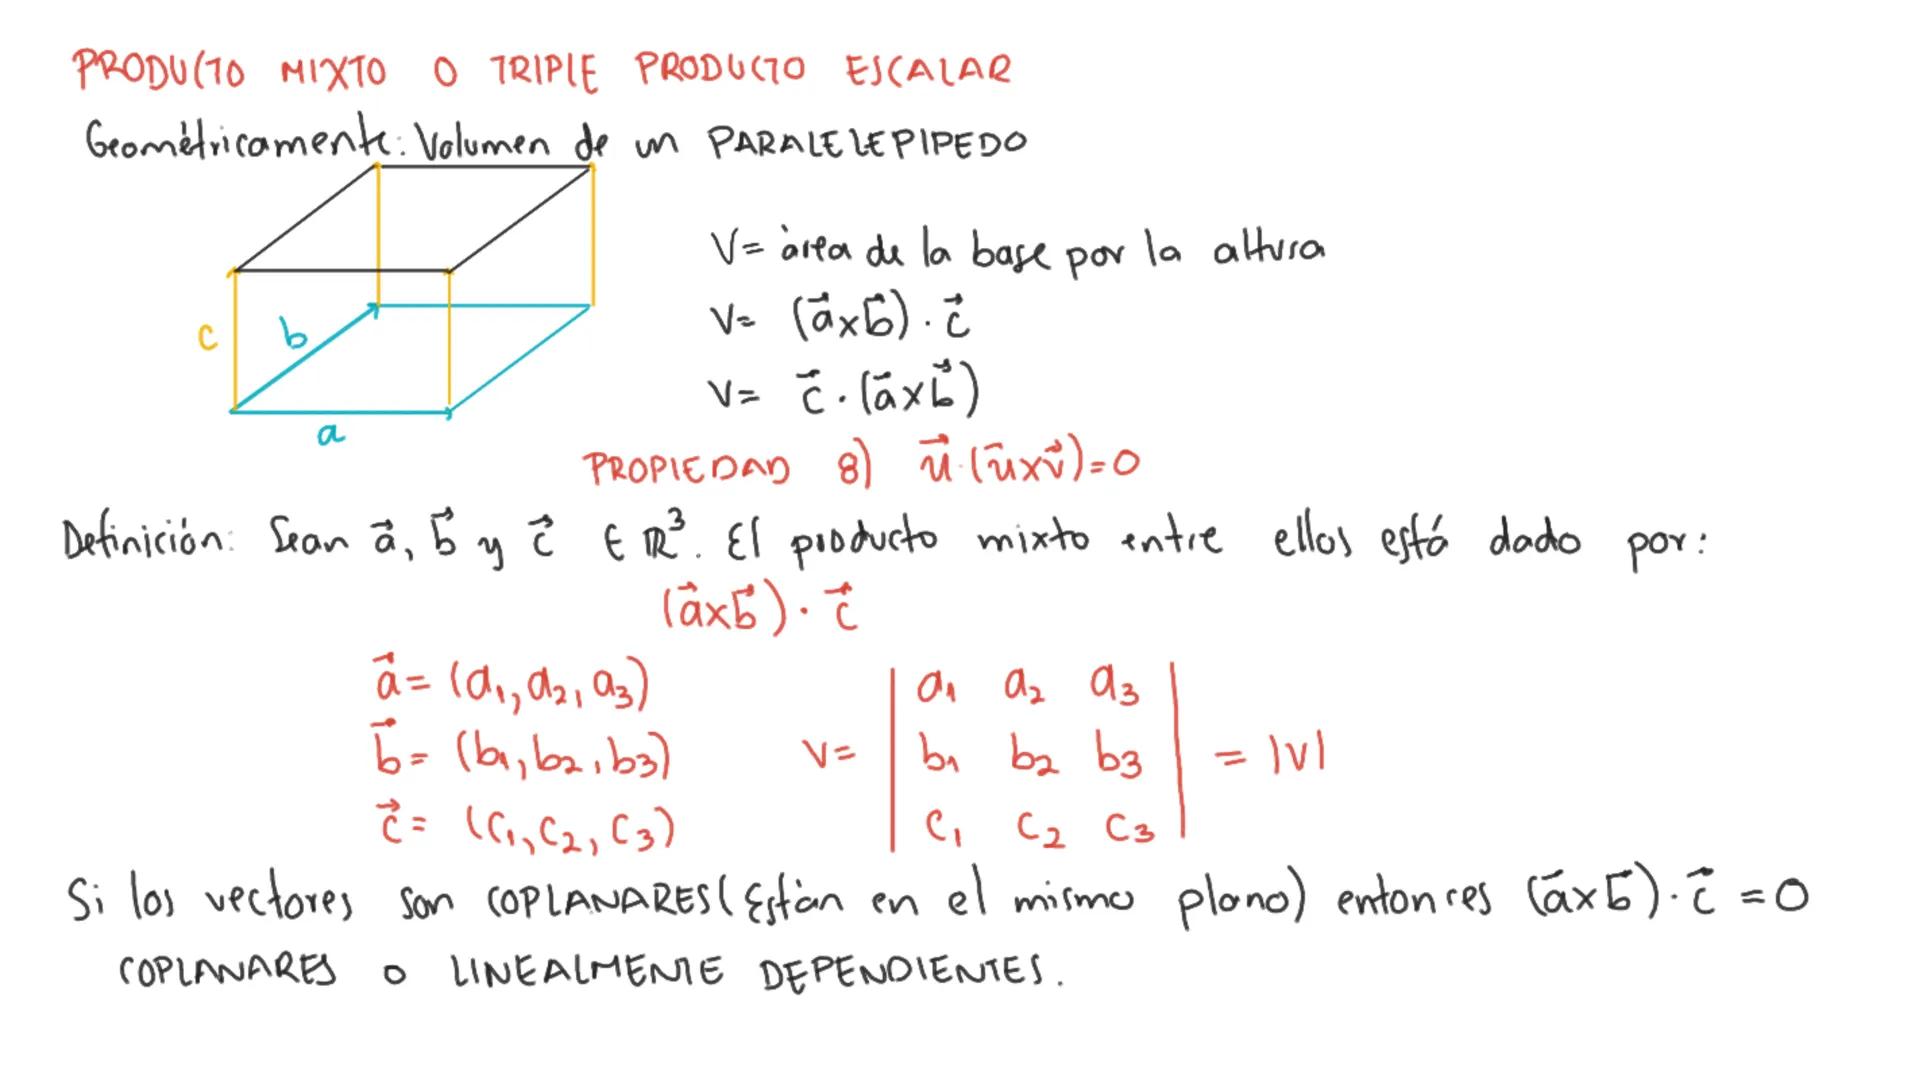 PRODUCTO MIXTO O TRIPLE PRODUCTO ESCALAR
Geométricamente: Volumen de un PARALELEPIPEDO
V= área de la base por la altura
V= (a⃗xb⃗)·c⃗
c
b
V= c⃗·(a⃗xb⃗)
a
PROPIEDAD 8) u⃗·(u⃗xv⃗)=0
Definición: Sean a⃗, b⃗ y c⃗ ∈ ℝ³. El producto mixto entre ellos está dado por:
(a⃗xb⃗)·c⃗
a⃗= (a₁, a₂, a₃)
b⃗= (b₁, b₂, b₃)
c⃗= (c₁, c₂, c₃)
V= | a₁ a₂ a₃ |
| b₁ b₂ b₃ | = |V|
| c₁ c₂ c₃ |
Si los vectores son COPLANARES (Están en el mismo plano) entonces (a⃗xb⃗)·c⃗ = 0
COPLANARES o LINEALMENTE DEPENDIENTES.